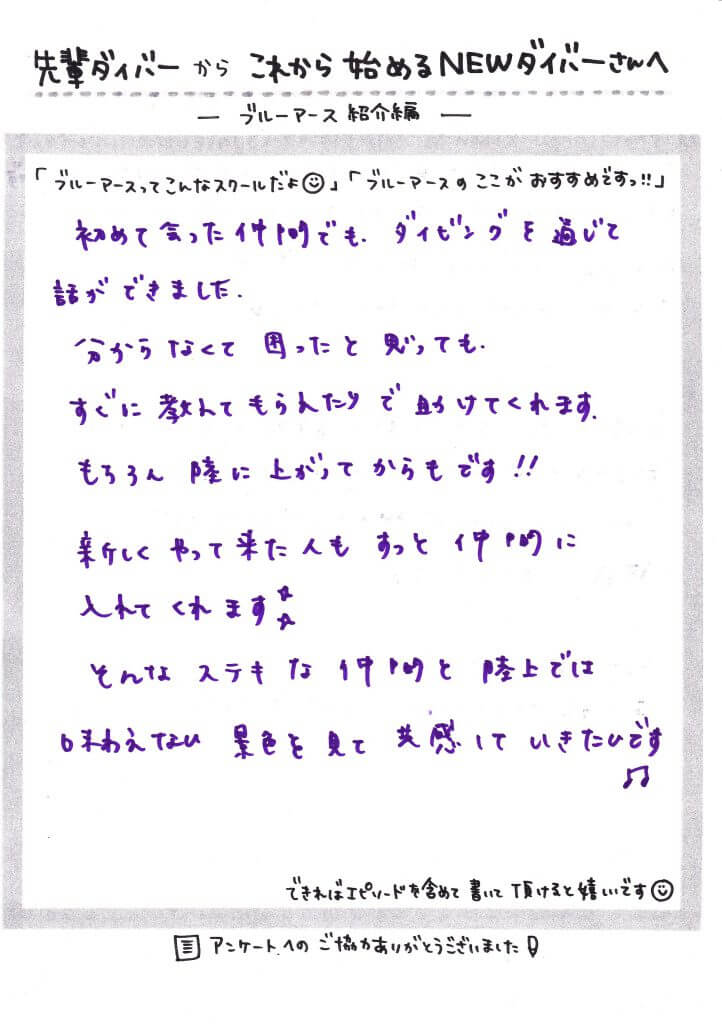 先輩ダイバーから これから始めるNEWダイバーさんへ
― ブルーアース紹介編 ―
「ブルーアースってこんなスクールだよ☺」「ブルーアースのここがおすすめですっ!!」
初めて会った仲間でも、ダイビングを通じて
話ができました.
分からなくて困ったと思っても、
すぐに教えてもらえたりで助けてくれます.
もちろん陸に上がってからもです!!
新しくやって来た人もすっと仲間に
入れてくれます☆☆
そんなステキな仲間と陸上では
味わえない景色を見て共感していきたいです♫
できればエピソードを含めて書いて頂けると嬉しいです☺
アンケートへのご協力ありがとうございました